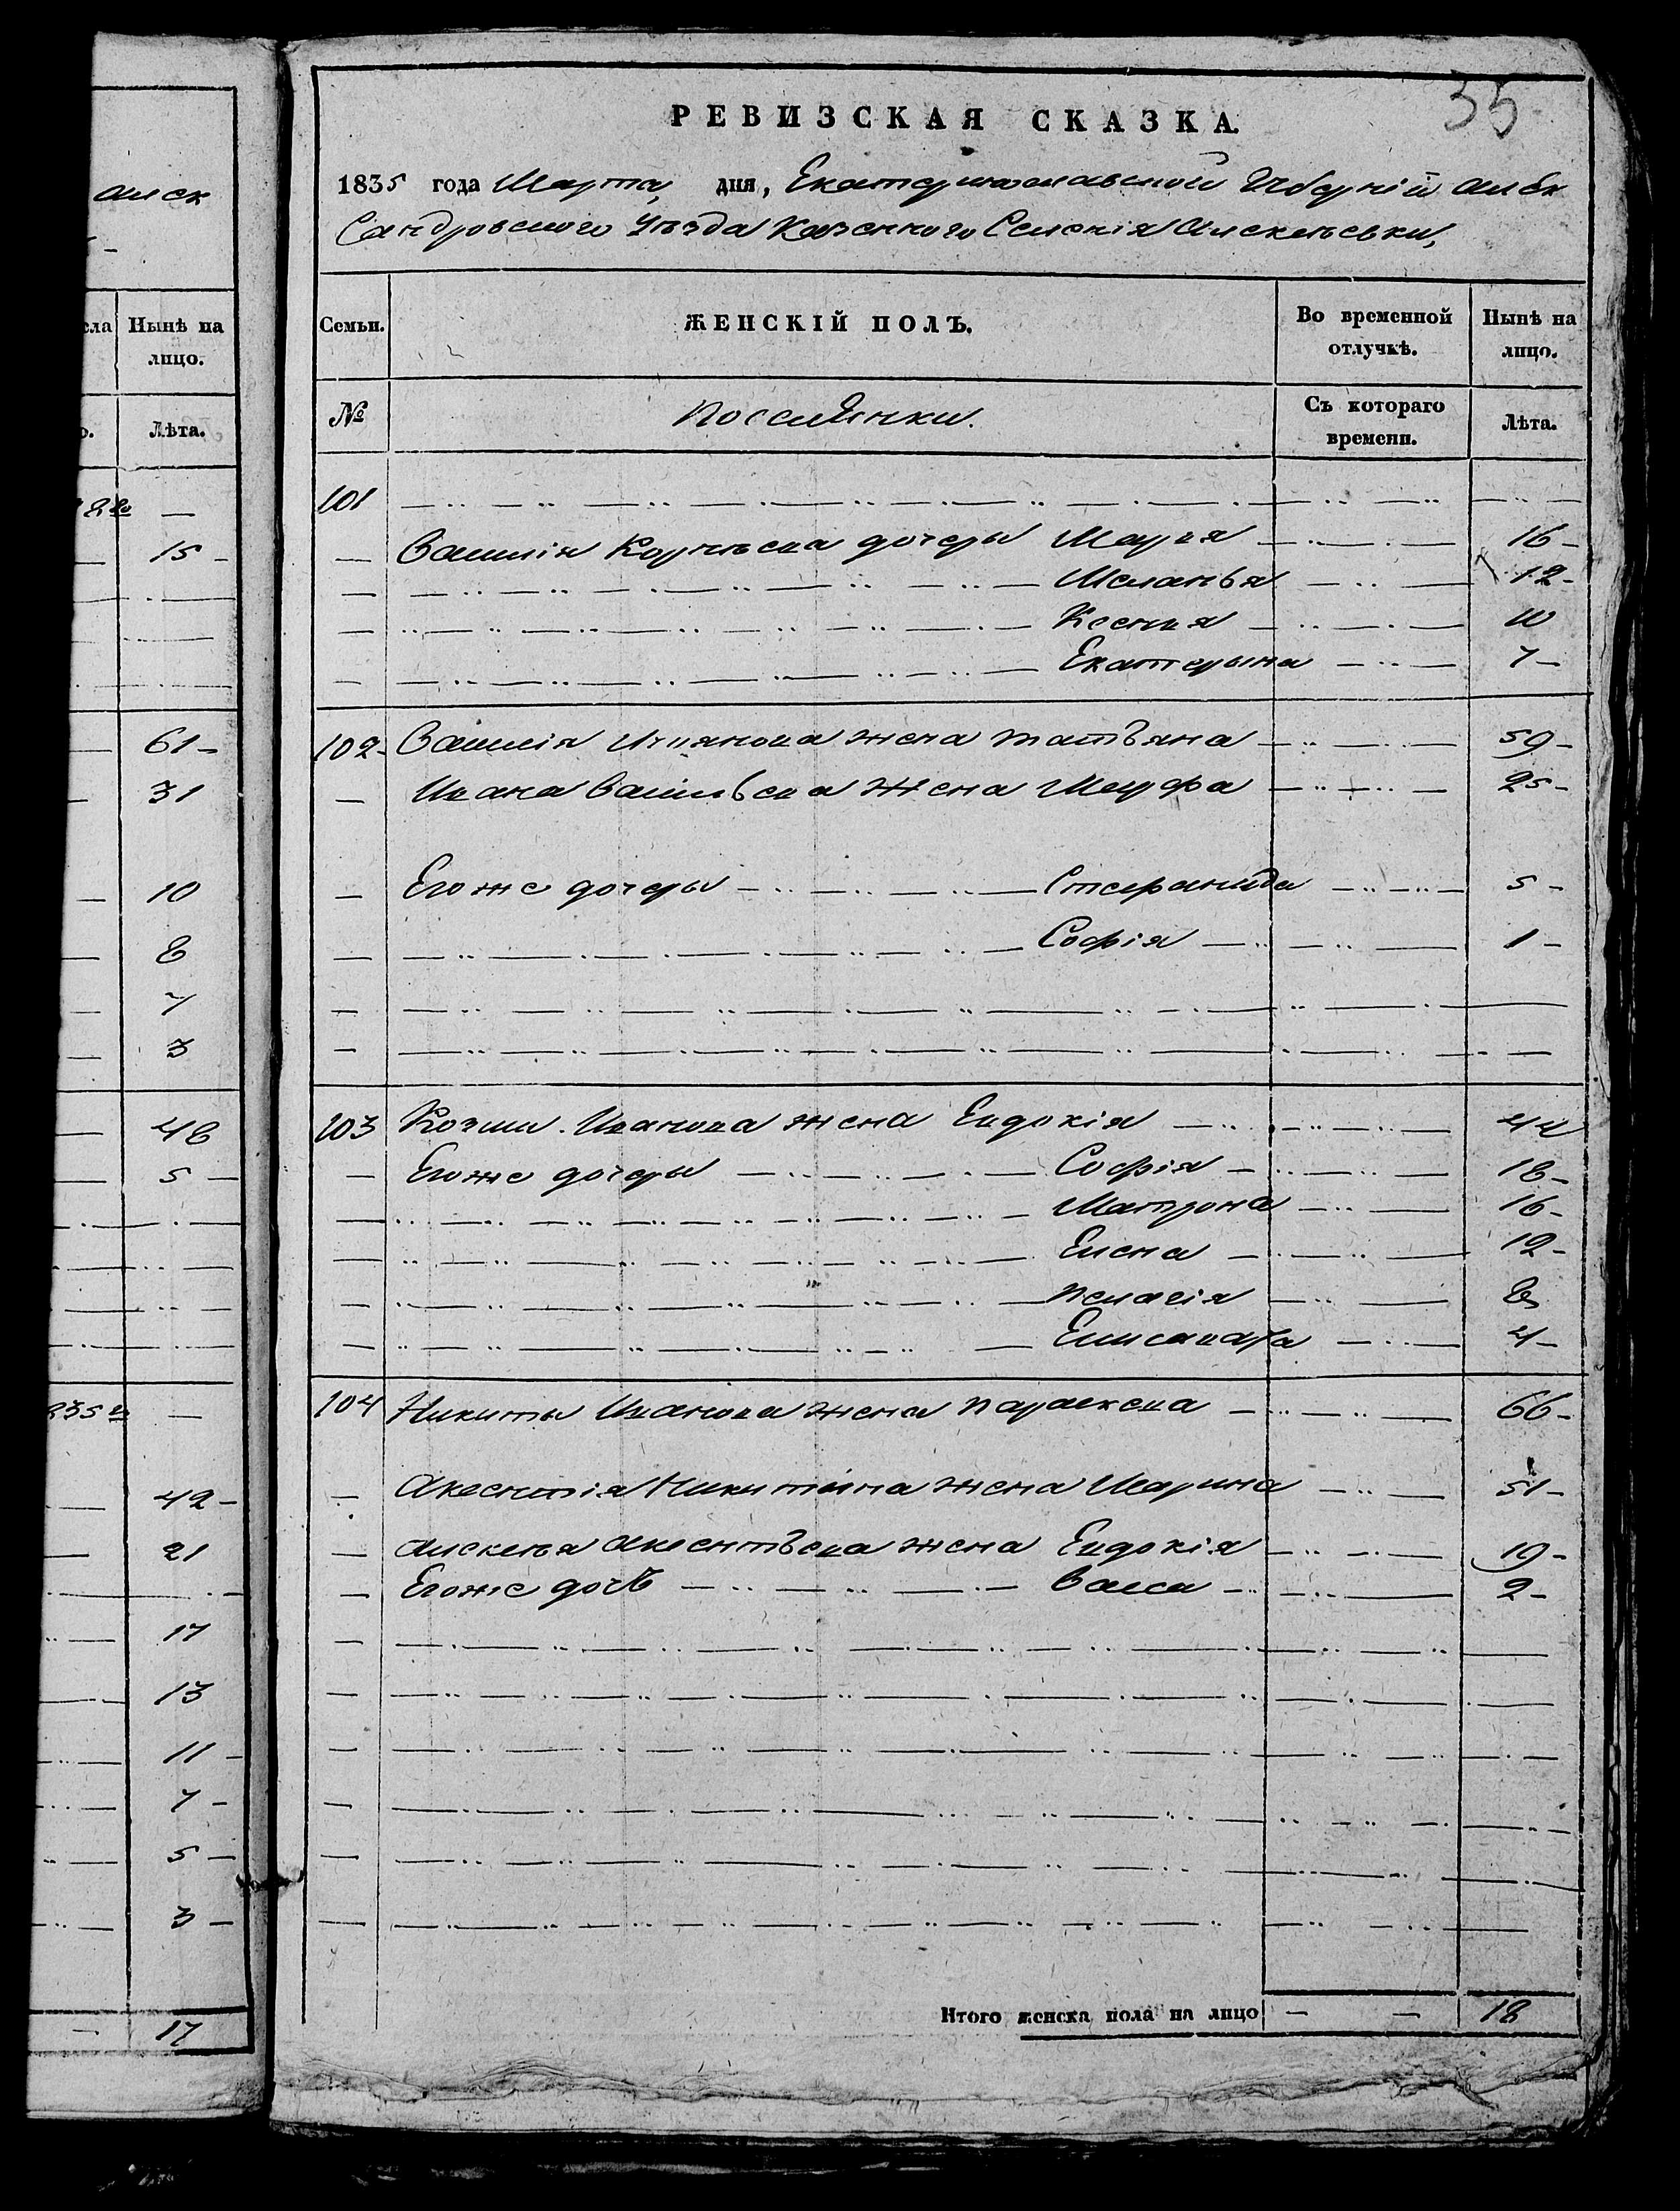 алек
сла Нынѣ на
лицо.
о. Лѣта.
15 -
61 -
31
10
8
7
3
48
5 -
235 го —
42 -
21
17
13
11 -
7 -
5 -
3 -
17
35
РЕВИЗСКАЯ СКАЗКА.
1835 года Марта, дня, Екатеринославской Губерніи Алек
Сандровского Уѣзда Казенного Селенія Алексѣевки,
Семьи. ЖЕНСКІЙ ПОЛЪ. Во временной отлучкѣ. Нынѣ на лицо.
№ Поселянки. Съ котораго времени. Лѣта.
101
Василія Корнѣева дочеры Марія 16 -
Меланья 12 -
Ксенія 10
Екатерына 7 -
102 - Василія жена татьяна 59 -
Ивана Васильева жена Марфа 25 -
Егоже дочеры Стефанида 5 -
Софія 1 -
103 Козми Иванова жена Евдокія 44
Егоже дочеры Софія 18 -
Матрона 16 -
Елена 12 -
Пелагія 8
Елисавафа 4 -
104 Никиты Иванова жена параскева 66 -
Аксентія Никитина жена Марина 51 -
Алексѣя Аксентьева жена Евдокія 19 -
Егоже дочь Васса 2 -
Итого женска пола на лицо — — 18